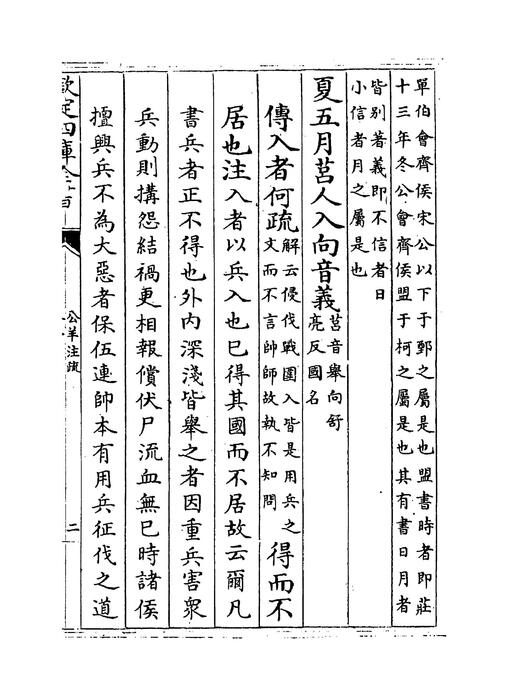 單伯會齊侯宋公以下于鄄之屬是也盟書時者即莊
十三年冬公會齊侯盟于柯之屬是也其有書日月者
皆别著義即不信者日
小信者月之屬是也
夏五月莒人入向音義莒音舉向舒
亮反國名
傳入者何疏解云侵伐戰圍入皆是用兵之
文而不言帥師故執不知問
得而不
居也注入者以兵入也已得其國而不居故云爾凡
書兵者正不得也外内深淺皆舉之者因重兵害衆
兵動則搆怨結禍更相報償伏尸流血無已時諸侯
擅興兵不為大惡者保伍連帥本有用兵征伐之道
欽定四庫全書
公羊注疏
二